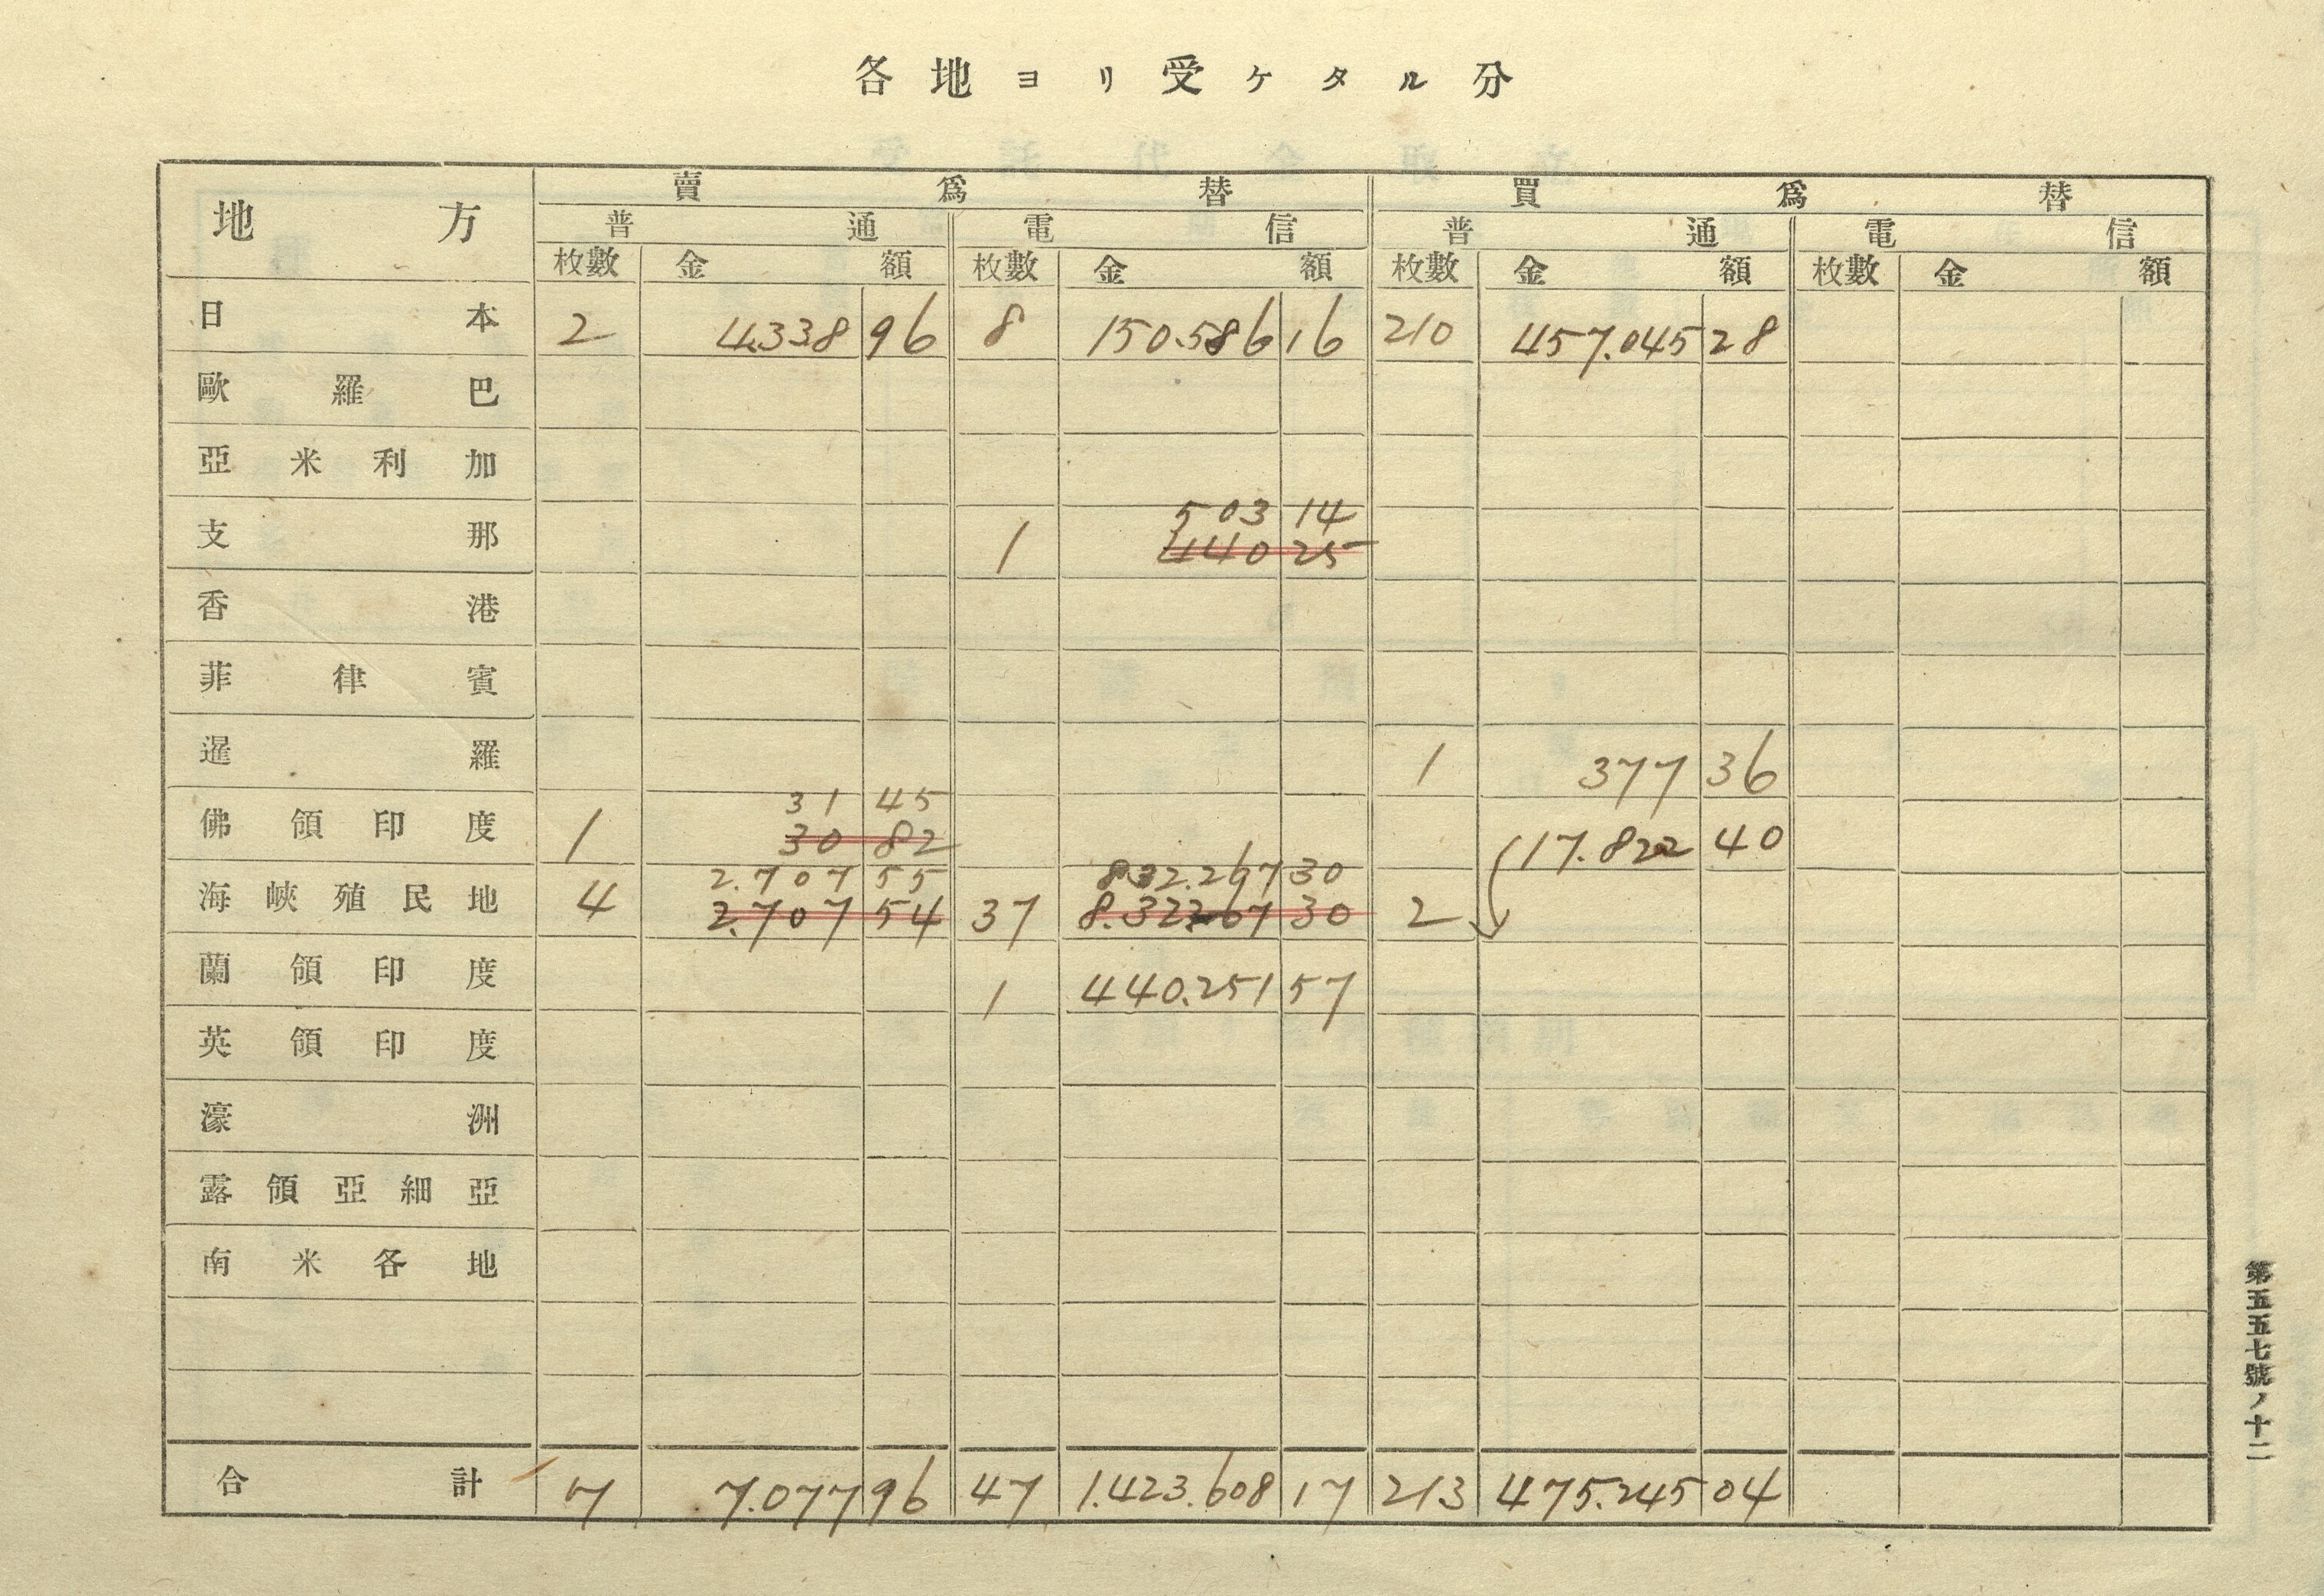 各地ヨリ受ケタル分
地方 賣爲替 買爲替
普通 電信 普通 電信
枚數 金額 枚數 金額 枚數 金額 枚數 金額
日本 2 4.338 96 8 150.586 16 210 457.045 28
歐羅巴
亞米利加
503 14
支那 1 440 25
香港
菲律賓
暹羅 1 377 36
31 45
佛領印度 1 30 82 17.822 40
2.707 55 832.267 30
海峽殖民地 4 2.707 54 37 8.322267 30 2
蘭領印度 1 440.251 57
英領印度
濠洲
露領亞細亞
南米各地
合計 7 7.077 96 47 1.423.608 17 213 475.245 04
第五五七號ノ十二